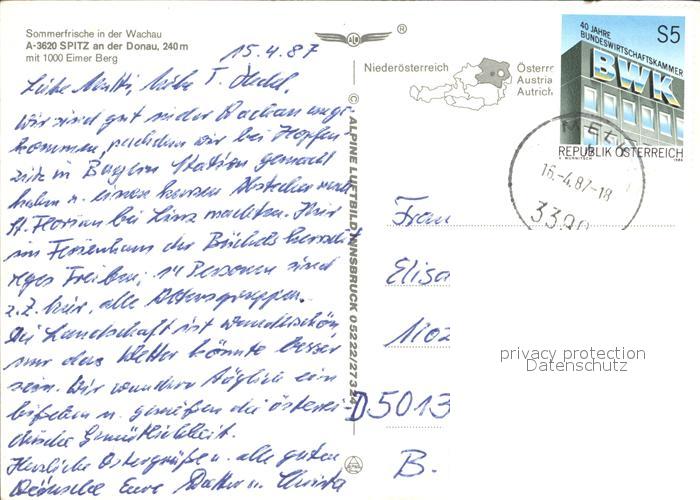 Sommerfrische in der Wachau
A-3620 SPITZ an der Donau, 240 m
mit 1000 Eimer Berg
15.4.87
Liebe Mutti, liebe T.
Wir sind gut in der Wachau ange-
kommen, nachdem wir bei
in Bayern Station gemacht
haben u. einen kurzen Abstecher nach
St. Florian bei Linz machten. Hier
im Ferienhaus der herrscht
reges Treiben, 14 Personen sind
z.Z. hier, alle Altersgruppen.
Die Landschaft ist wunderschön
nur das Wetter könnte besser
sein. Wir wandern täglich ein
bißchen u. genießen die österrei-
chische Gemütlichkeit.
Herzliche Ostergrüße u. alle guten
Wünsche Eure u. Christa
© ALPINE LUFTBILD INNSBRUCK 05222/27324
®
Niederösterreich
Österre
Austria
Autrich
40 JAHRE
BUNDESWIRTSCHAFTSKAMMER
S5
BWK
REPUBLIK ÖSTERREICH
1986
MELK
16.-4.87-18
3390
Frau
Elisa
D 5013
B.
privacy protection
Datenschutz